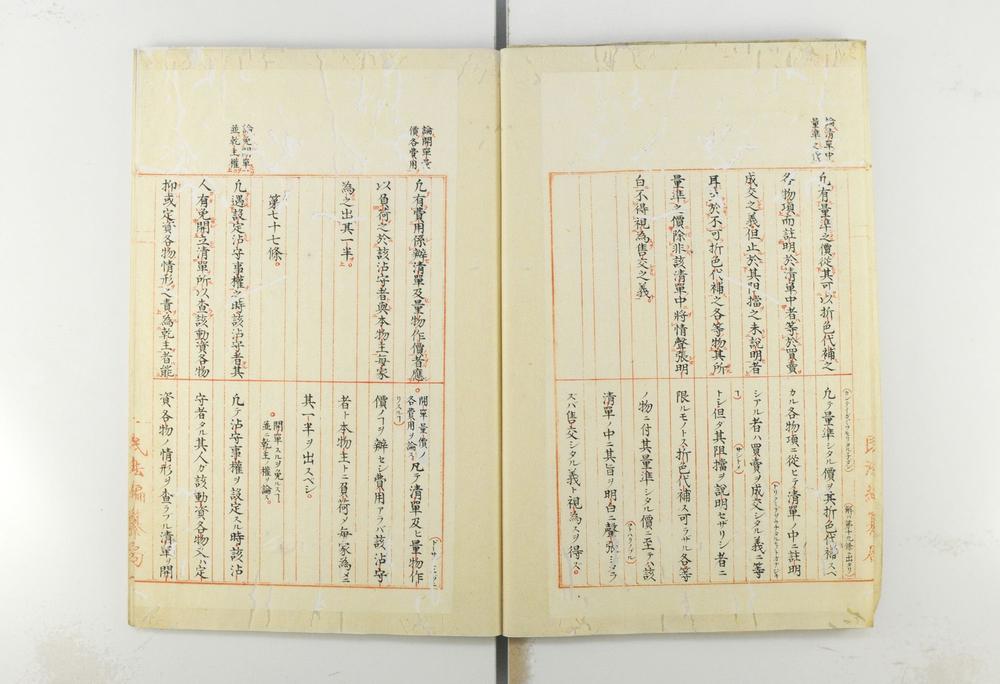 論清單中
量準之價
凢有量準之價從其可以折色代補之
各物項而註明於清單中者等於買賣
成交之義但止於其阻擋之未說明者
耳至於不可折色代補之各等物其所
量準之價除非該清單中將情聲張明
白不得視為售交之義
凢テ量準シタル價ヲ其折色代補スヘ
カル各物項ニ從ヒテ清單ノ中ニ註明
シアル者ハ買賣ヲ成交シタル義ニ等
トシ但タ其阻擋ヲ說明セサリシ者ニ
限ルモノトス折色代補ス可ラサル各等
ノ物ニ付其量準シタル價ニ至テハ該
清單ノ中ニ其旨ヲ明白ニ聲張シタラ
スハ售交シタル義ト視為スヲ得ス
論開單量
價各費用
凢有費用係辦清單及量物作價者應
以負荷之於該沾守者與本物主每家
為之出其一半
第七十七條
論免開單
並乾主權
凢遇設定沾守事權之時該沾守者其
人有免開立清單所以查該動資各物
抑或定資各物情形之責為乾主者能
開單量價ノ
各費用ヲ論ス
凢テ清單及ヒ量物作
價ノヿヲ辦セシ費用アラバ該沾守
者ト本物主トニ負荷メ每家為メニ
其一半ヲ出スベシ
開單スルヲ免スヘ
並ニ乾主ノ權ヲ論ス
凢テ沾守事權ヲ設定スル時該沾
守者タル其人ガ該動資各物又ハ定
資各物ノ情形ヲ查ラフル清單ヲ開